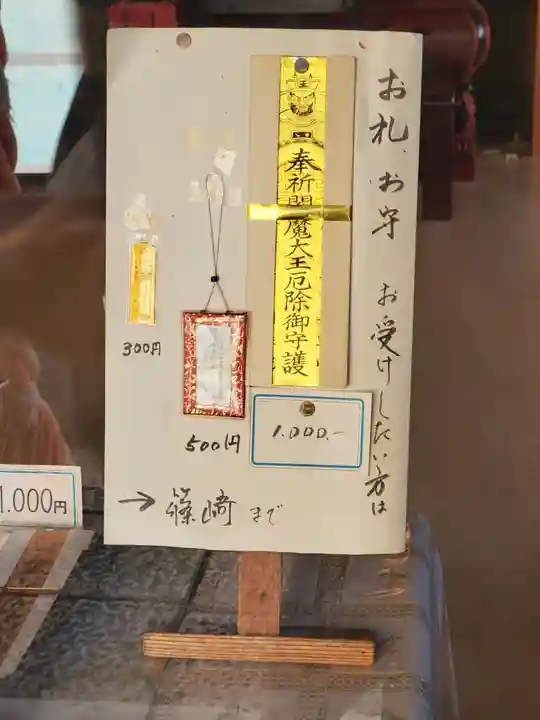 お札、お守 お受けしたい方は
王
奉祈閻魔大王厄除御守護
300円
500円
1.000.-
→ 篠崎 まで
1.000円